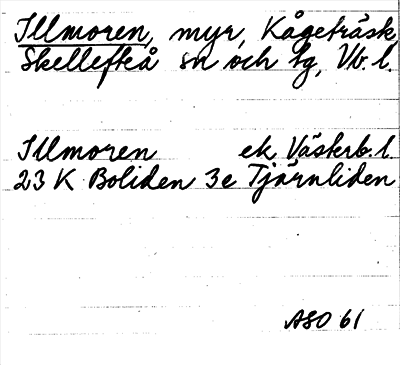 Illmoren, myr, Kågeträsk,
Skellefteå sn och tg, Vb. l.
Illmoren ek. Västerb. l.
23 K Boliden 3e Tjärnliden
ASO 61